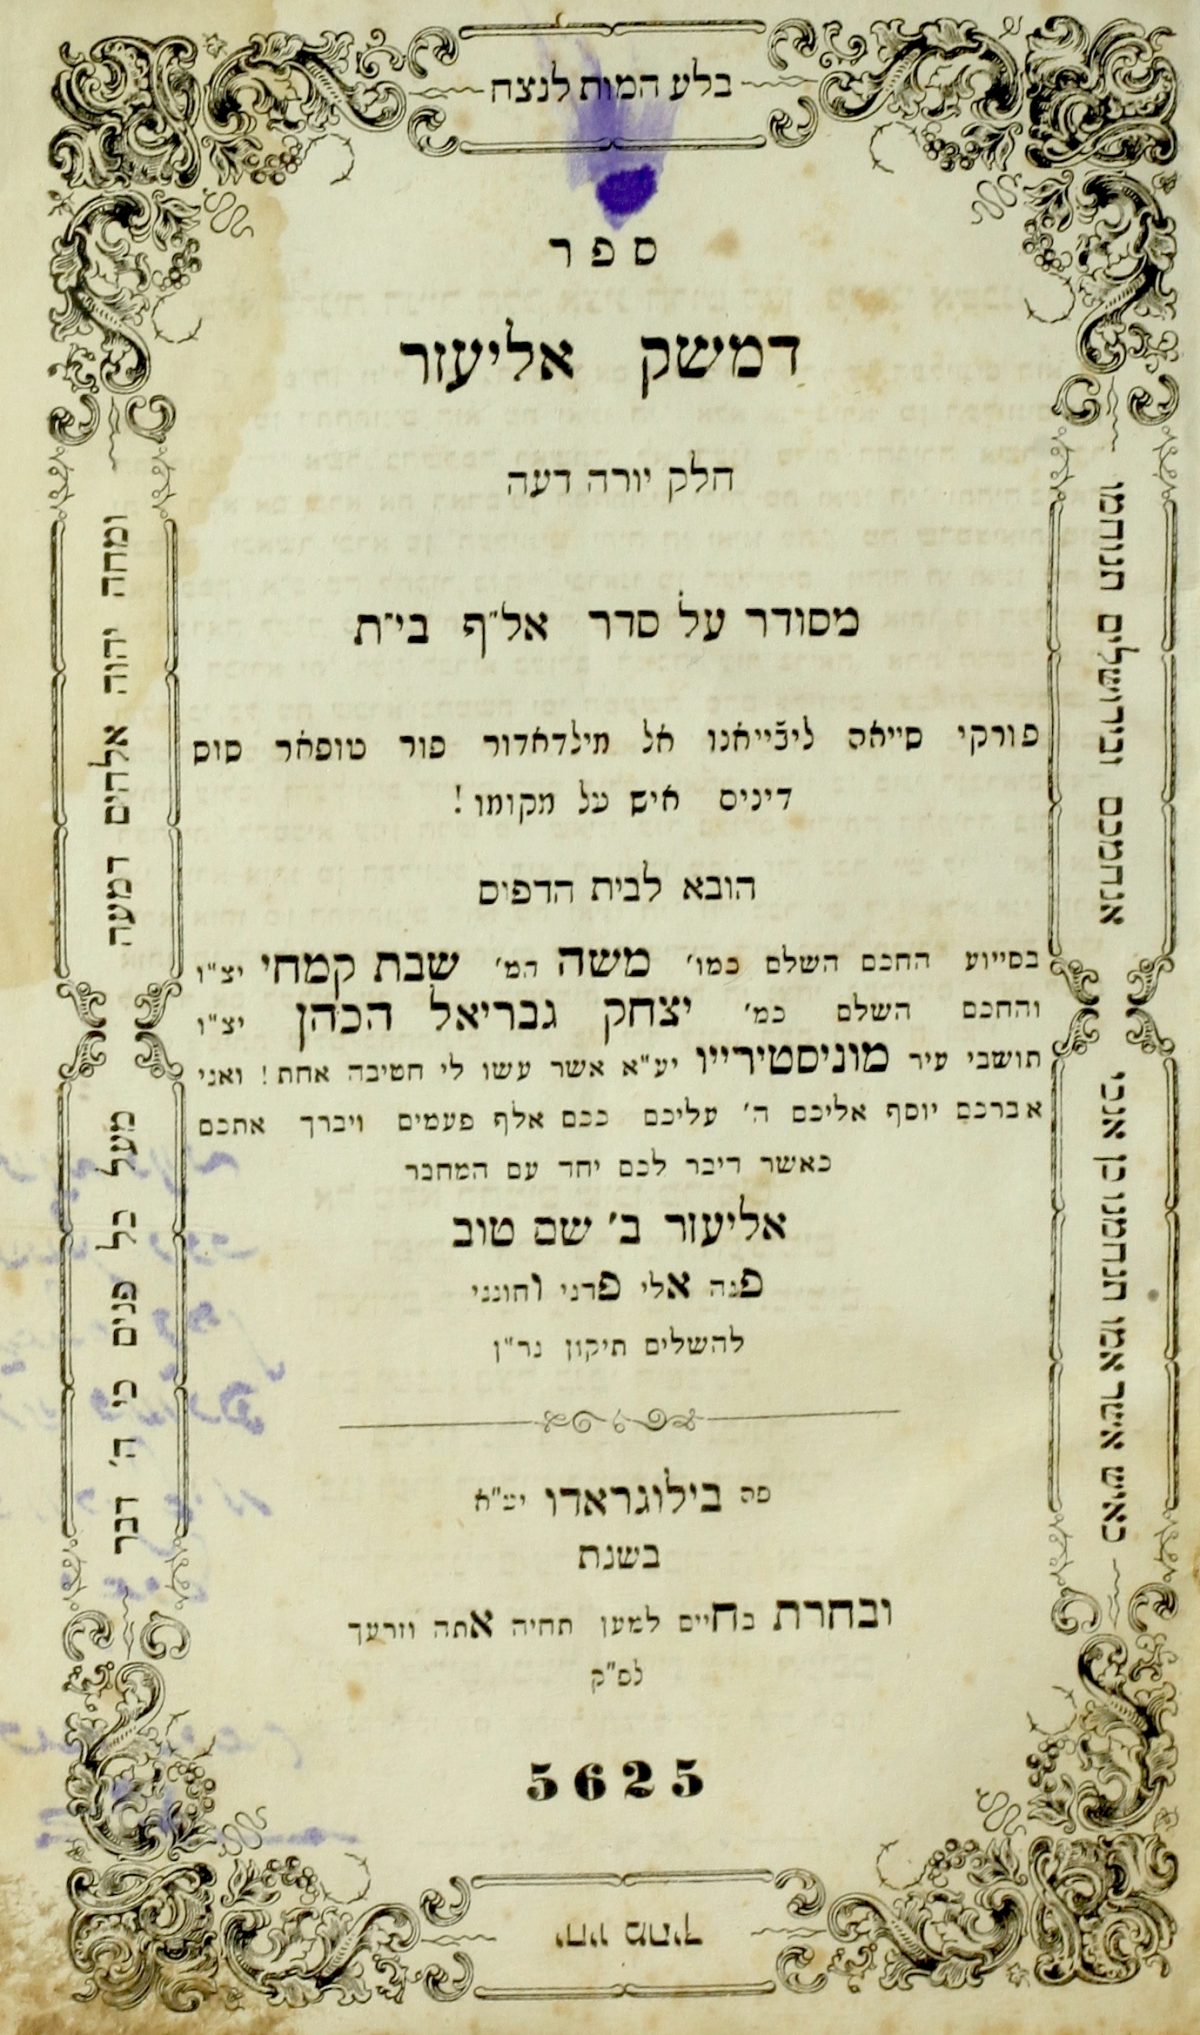 בלע המות לנצח
ספר
דמשק אליעזר
חלק יורה דעה
מסודר על סדר אל״ף בי״ת
פורקי סייאה ליב׳ייאנו אל מילדאדור פור טופאר סוס
דינים איש על מקומו!
הובא לבית הדפוס
בסייוע החכם השלם כמו׳ משה המ׳ שבת קמחי יצ״ו
והחכם השלם כמ׳ יצחק גבריאל הכהן יצ״ו
תושבי עיר מוניסטירייו יע״א אשר עשו לי חטיבה אחת! ואני
אברכם יוסף אליכם ה׳ עליכם ככם אלף פעמים ויברך אתכם
כאשר דיבר לכם יחד עם המחבר
אליעזר ב׳ שם טוב
פנה אלי פרני וחונני
להשלים תיקון נר״ן
פה בילוגראדו יע״א
בשנת
ובחרת בחיים למען תחיה אתה וזרעך
לפ״ק
5625
כאיש אשר אמו תנחמנו כן אנכי
אנחמכם ובירושלים תנוחמו
ומחה יהוה אלהים דמעה
מעל כל פנים כי ה׳ דבר
יחיו מתיך